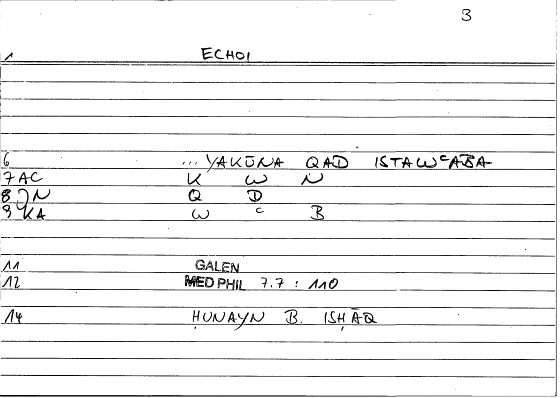 3
1 ECHOI
6 ... YAKŪNA QAD ISTAWᶜABA
7 AC K W N
8 JN Q D
9 KA W ᶜ B
11 GALEN
12 MED PHIL 7.7 : 110
14 ḤUNAYN B. ISḤĀQ